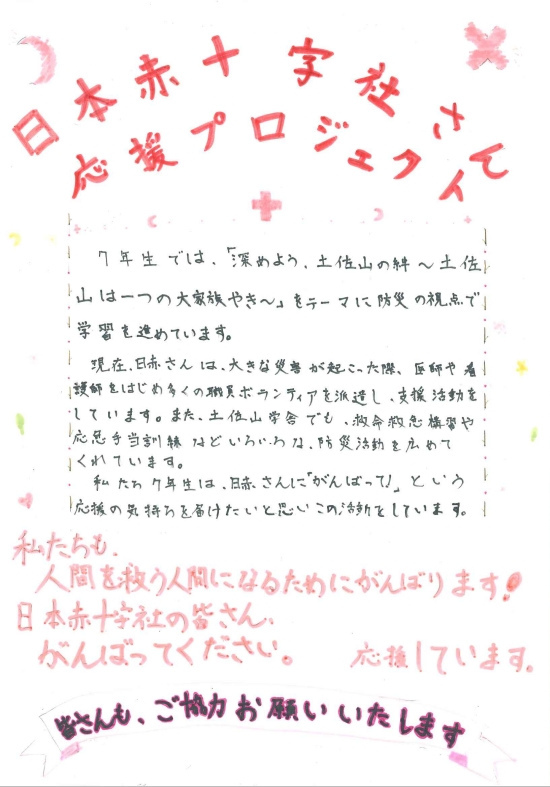 日本赤十字社さん
応援プロジェクト
7年生では、「深めよう、土佐山の絆～土佐
山は一つの大家族やき～」をテーマに防災の視点で
学習を進めています。
現在、日赤さんは、大きな災害が起こった際、医師や看
護師をはじめ多くの職員ボランティアを派遣し、支援活動を
しています。また、土佐山学舎でも、救命救急講習や
応急手当訓練などいろいろな、防災活動を広めて
くれています。
私たち7年生は、日赤さんに「がんばって!」という
応援の気持ちを届けたいと思いこの活動をしています。
私たちも、
人間を救う人間になるためにがんばります!
日本赤十字社の皆さん、
がんばってください。 応援しています。
皆さんも、ご協力お願いいたします